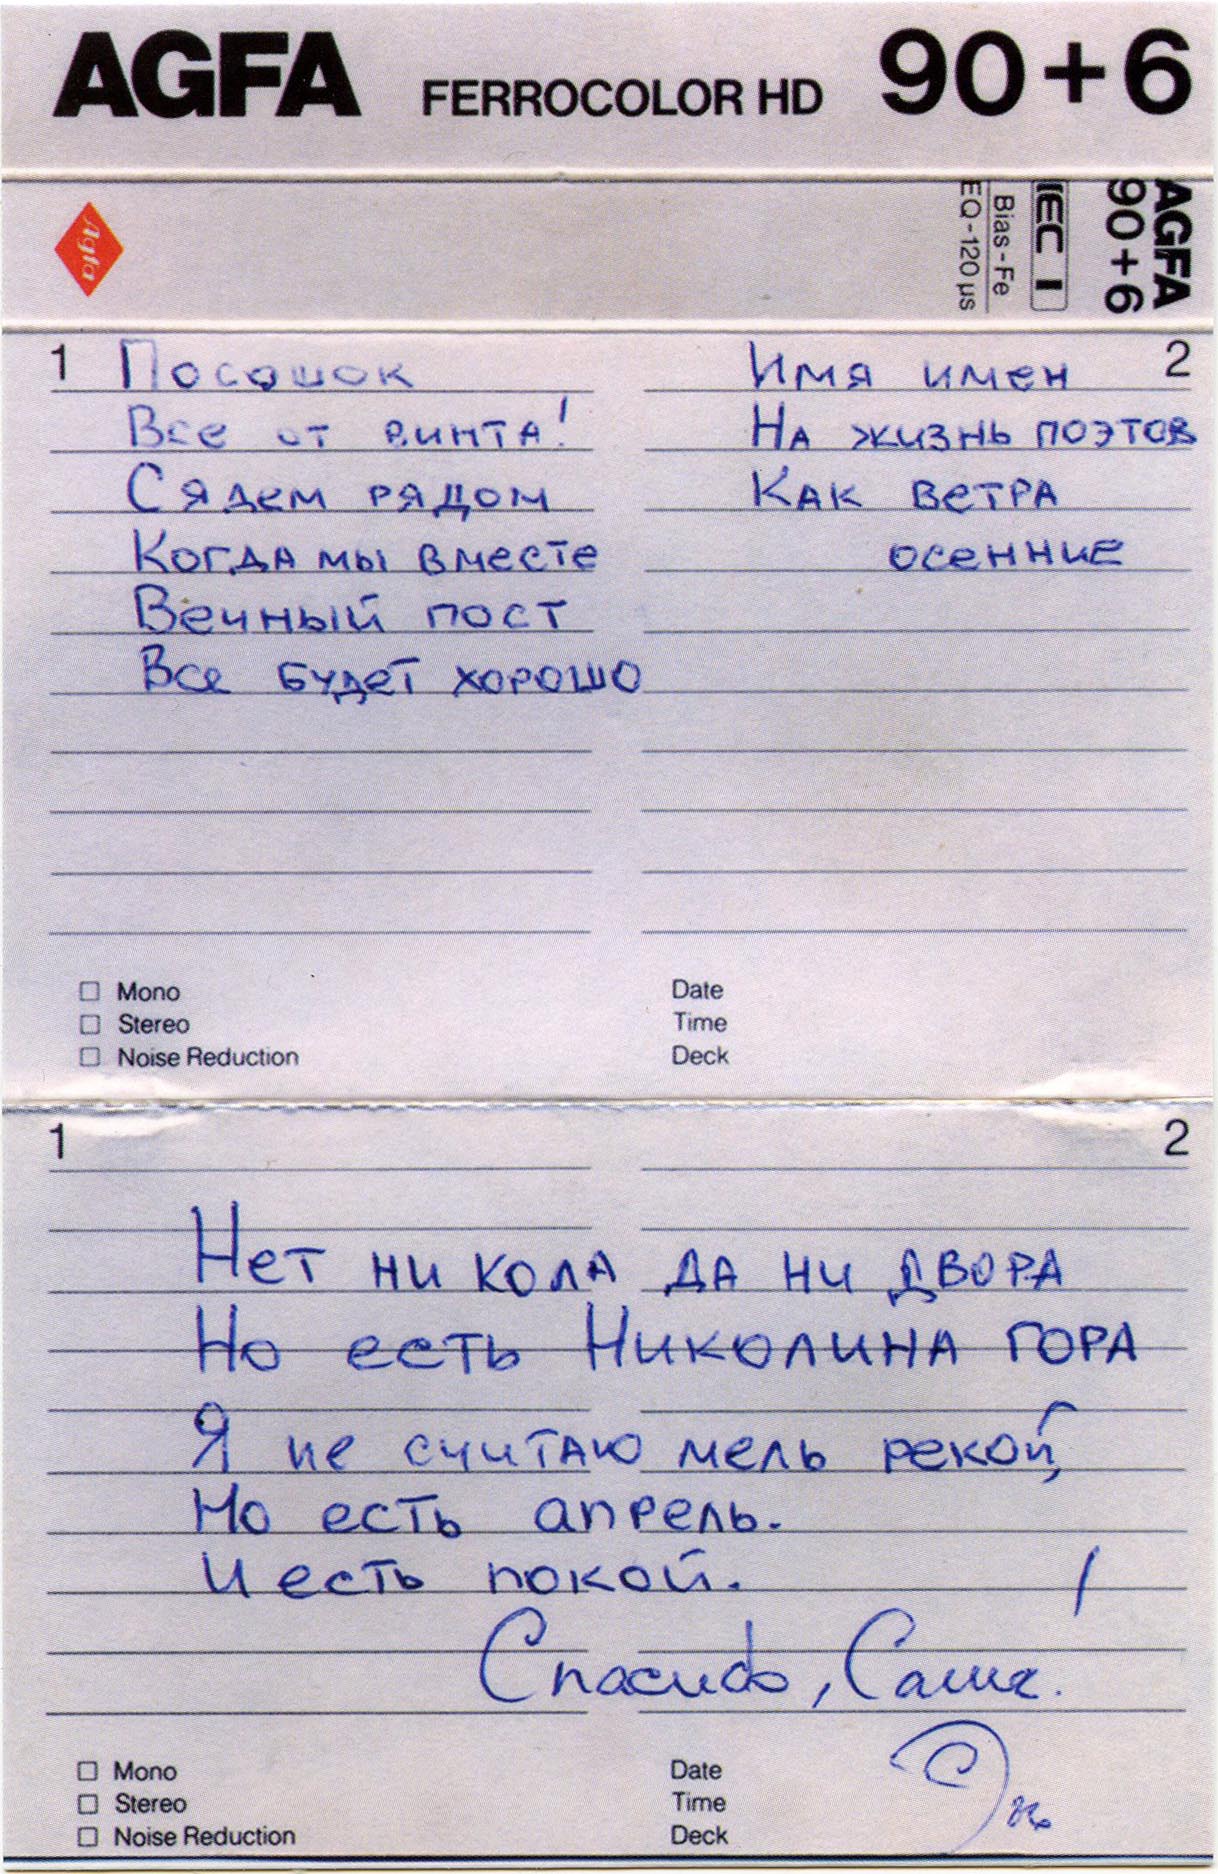 AGFA FERROCOLOR HD 90+6
Agfa
AGFA
90+6
IEC I
Bias-Fe
EQ-120 µs
1
Посошок
Все от винта!
Сядем рядом
Когда мы вместе
Вечный пост
Все будет хорошо
2
Имя имен
На жизнь поэтов
Как ветра
осенние
Mono
Stereo
Noise Reduction
Date
Time
Deck
1 2
Нет ни кола да ни двора
Но есть Николина гора
Я не считаю мель рекой,
Но есть апрель.
И есть покой.
Спасибо, Саша!
Mono
Stereo
Noise Reduction
Date
Time
Deck